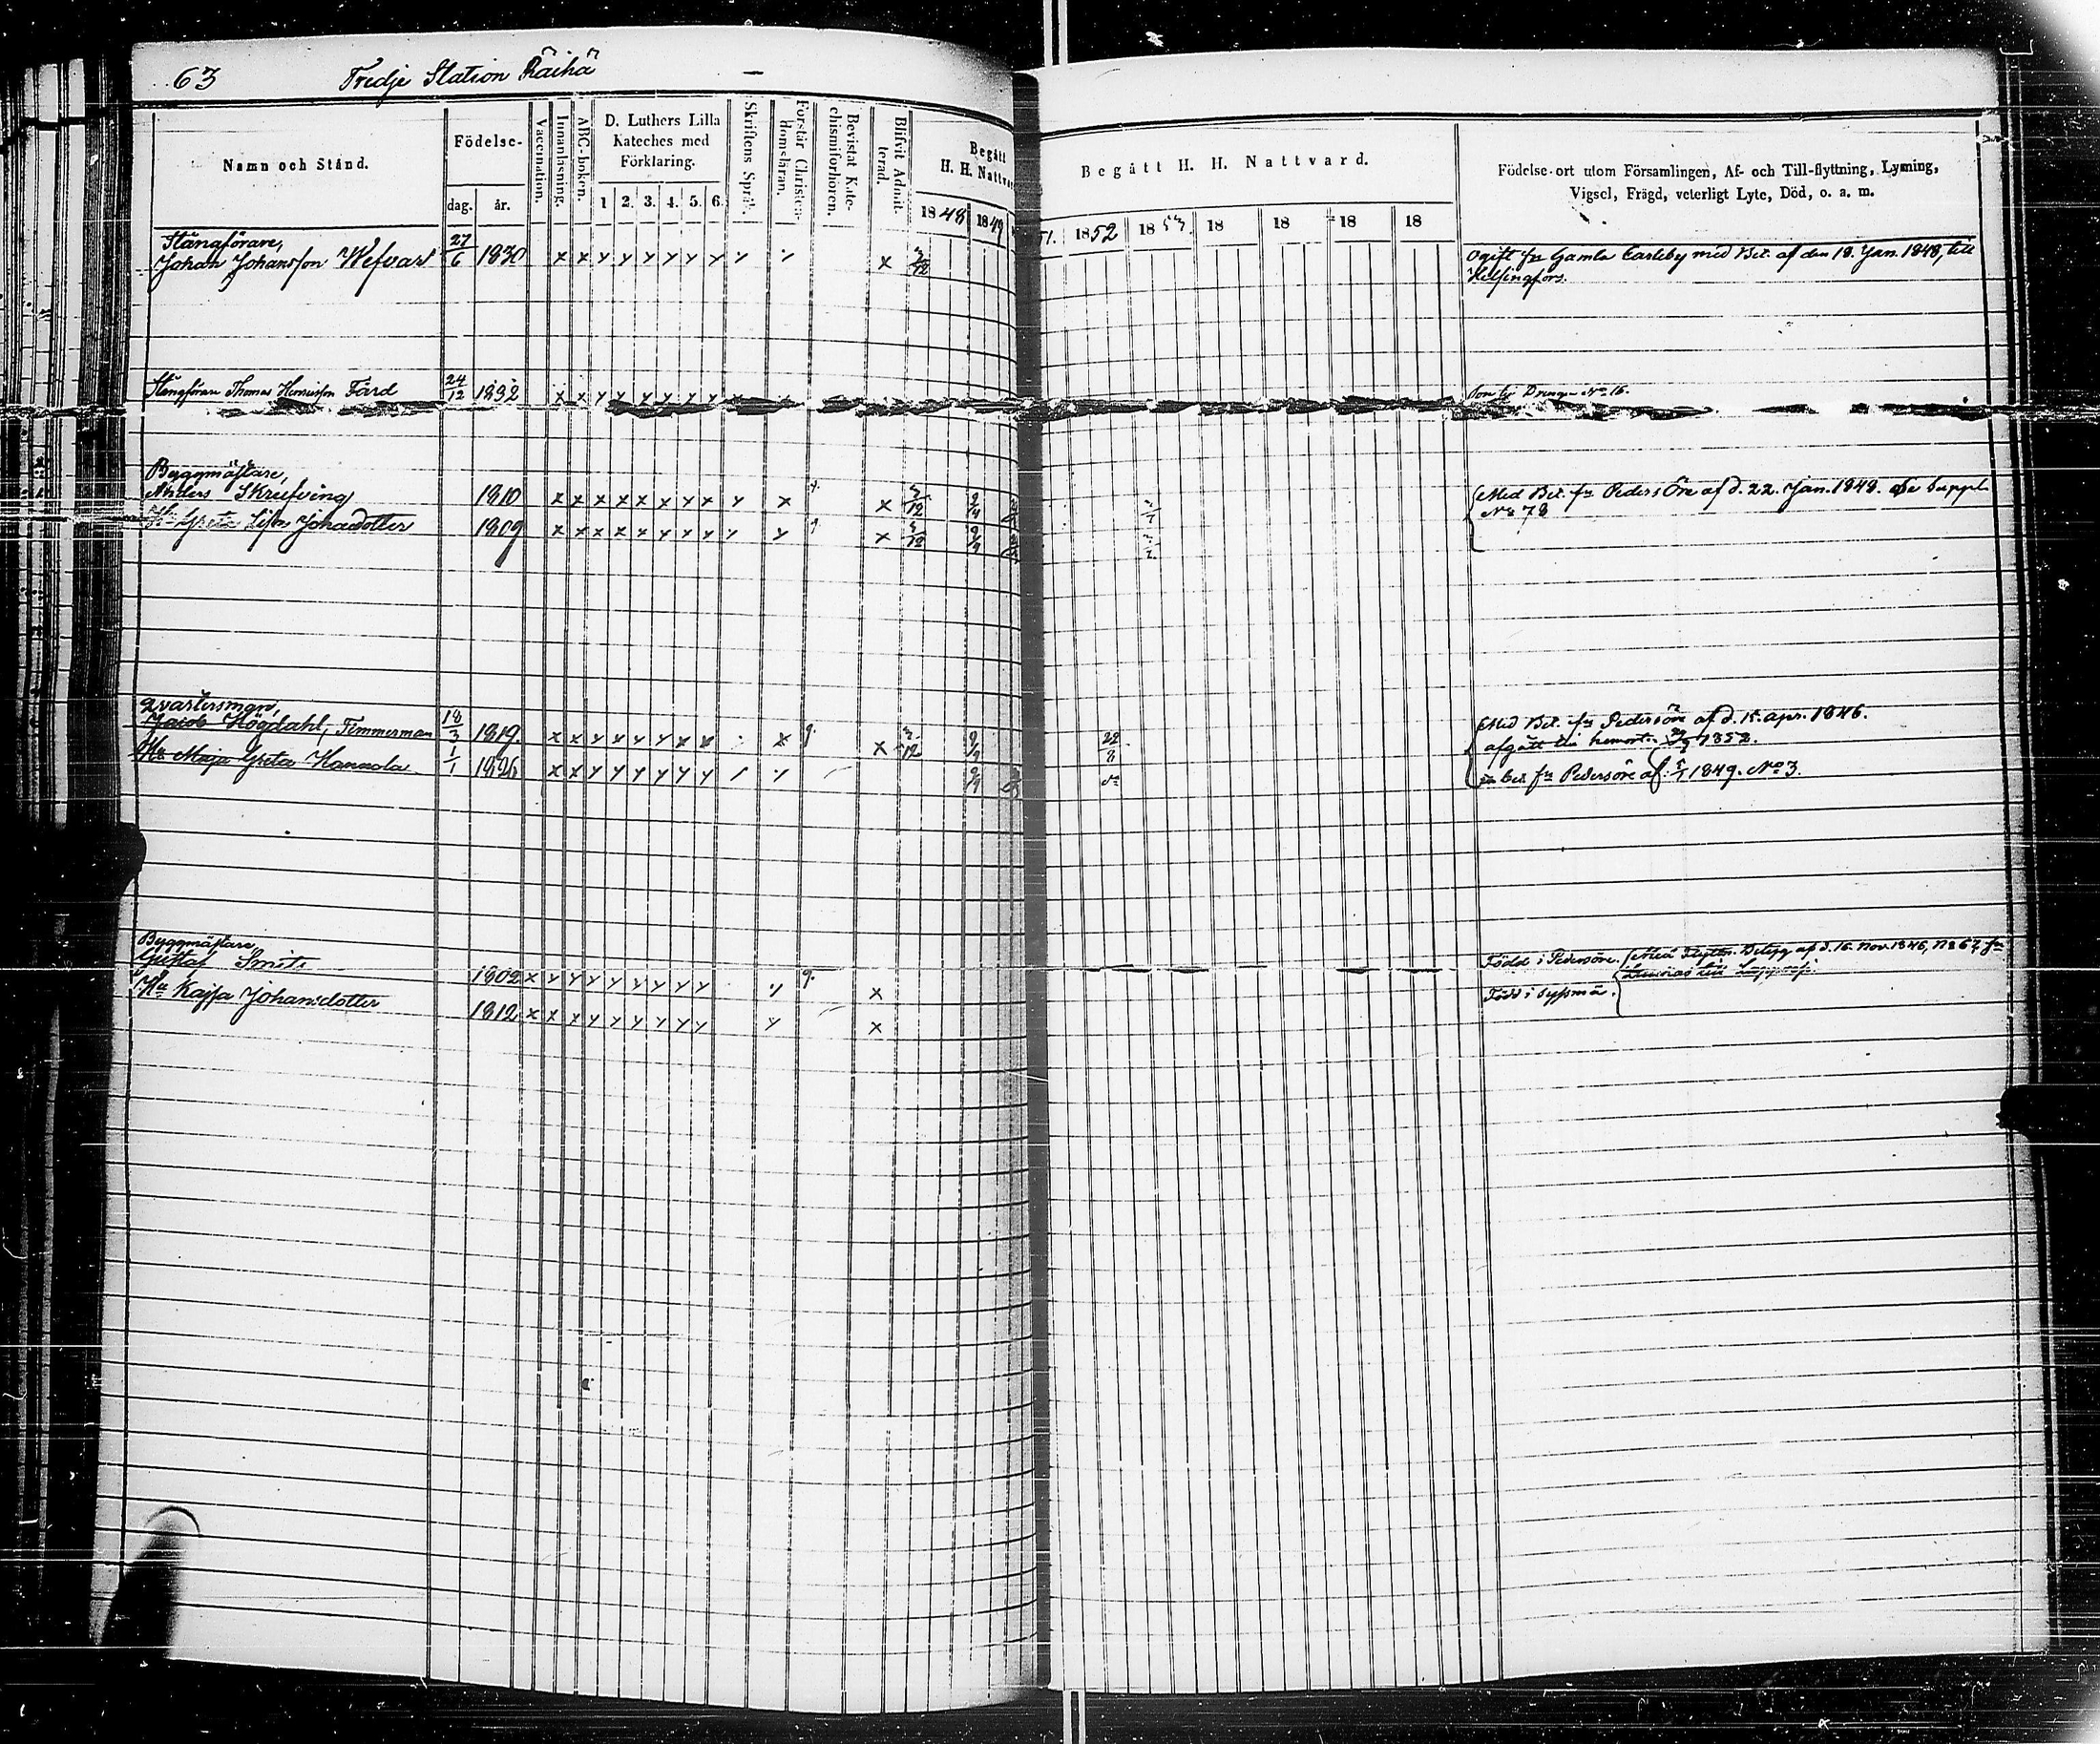 63 Tredje Station Räihä
Namn och Stånd.
Födelse-
dag. år.
Vaccination.
Innanläsning.
ABC-boken.
D. Luthers Lilla
Kateches med
Förklaring.
1 2. 3. 4. 5. 6.
Skriftens Språk.
Förstår Christen-
domsläran.
Bevistat Kate-
chismiförhören.
Blifvit Admit-
terad.
Begått
H. H. Nattvar
1848 1849
Begått H. H. Nattvard.
51. 1852 1853 18 18 18 18
Födelse-ort utom Församlingen, Af- och Till-flyttning, Lysning,
Vigsel, Frägd, veterligt Lyte, Död, o. a. m.
Stångförare,
Johan Johansson Wefvar 27/6 1830 x x y y y y y y y y x 3/12
Ogift fr Gamla Carleby med Bet. af den 18. Jan. 1848, till
Helsingfors.
Stångförare Thomas Henriksson Färd 24/12 1832 x x y y y y y y
No 16.
Byggmästare,
Anders Skrufving 1810 x x x x x x y y x y x x 3/12 9/9
Med Bet. fr Pedersöre af d. 22. Jan. 1848. Se Suppl.
No 78
Hu Greta Lisa Johansdotter 1809 x x x x x y y y y y y x 3/12 9/9
Qvartersman,
Jacob Högdahl, Timmerman 18/3 1819. x x y y y y x x x x 3/12 9/9 22/8
Med Bet. fr Pedersöre af d. 15. apr. 1846.
afgått till hemort. 1852.
Hu Maja Greta Hannola 1/1 1826 x x y y y y y y y 9/9 do
bet fr Pedersöre af 5/1 1849. No 3.
Byggmästare,
Gustaf Smits 1802 x y y y y y y y y y x
Född i Pedersöre. Med Flyttn. Betyg af d. 16. Nov. 1846, No 67, fr
Hu Kajsa Johansdotter 1812 x x x y y y y y y y x
Född i Sysmä.